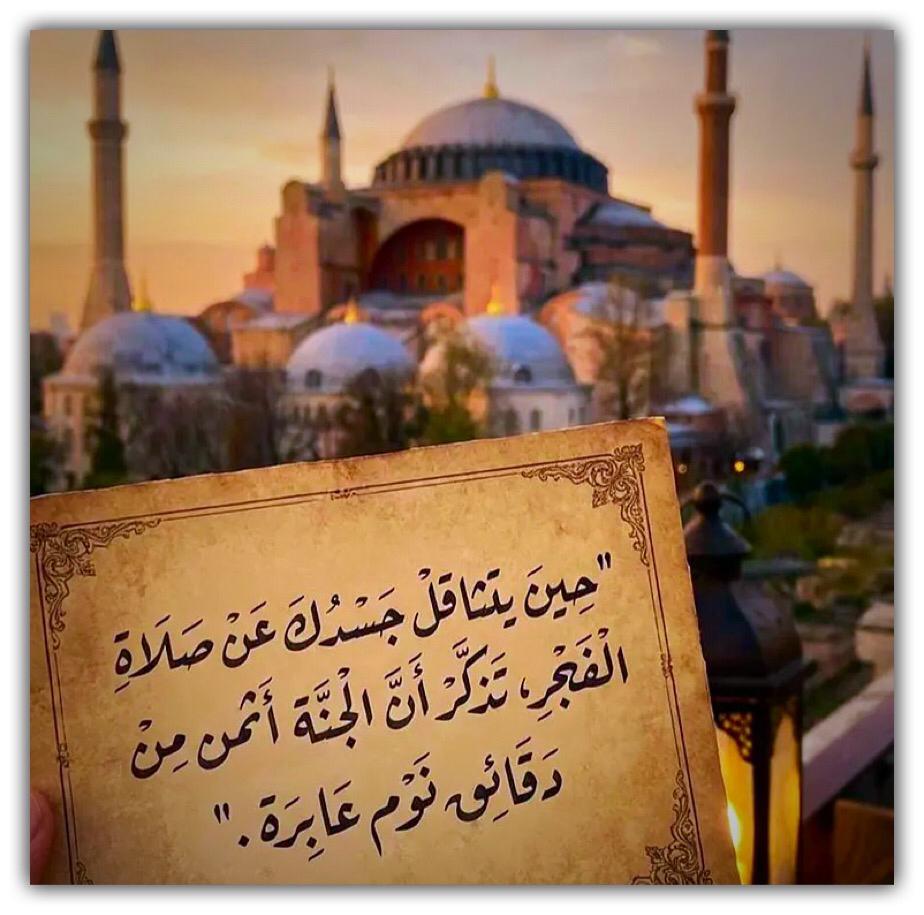 "حِينَ يتثاقلْ جَسْدُكَ عَنْ صَلَاةِ
الْفَجْرِ، تَذكَّرْ أَنَّ الْجَنَّة أَثمن مِنْ
دَقَائِق نَوْم عَابِرَة."